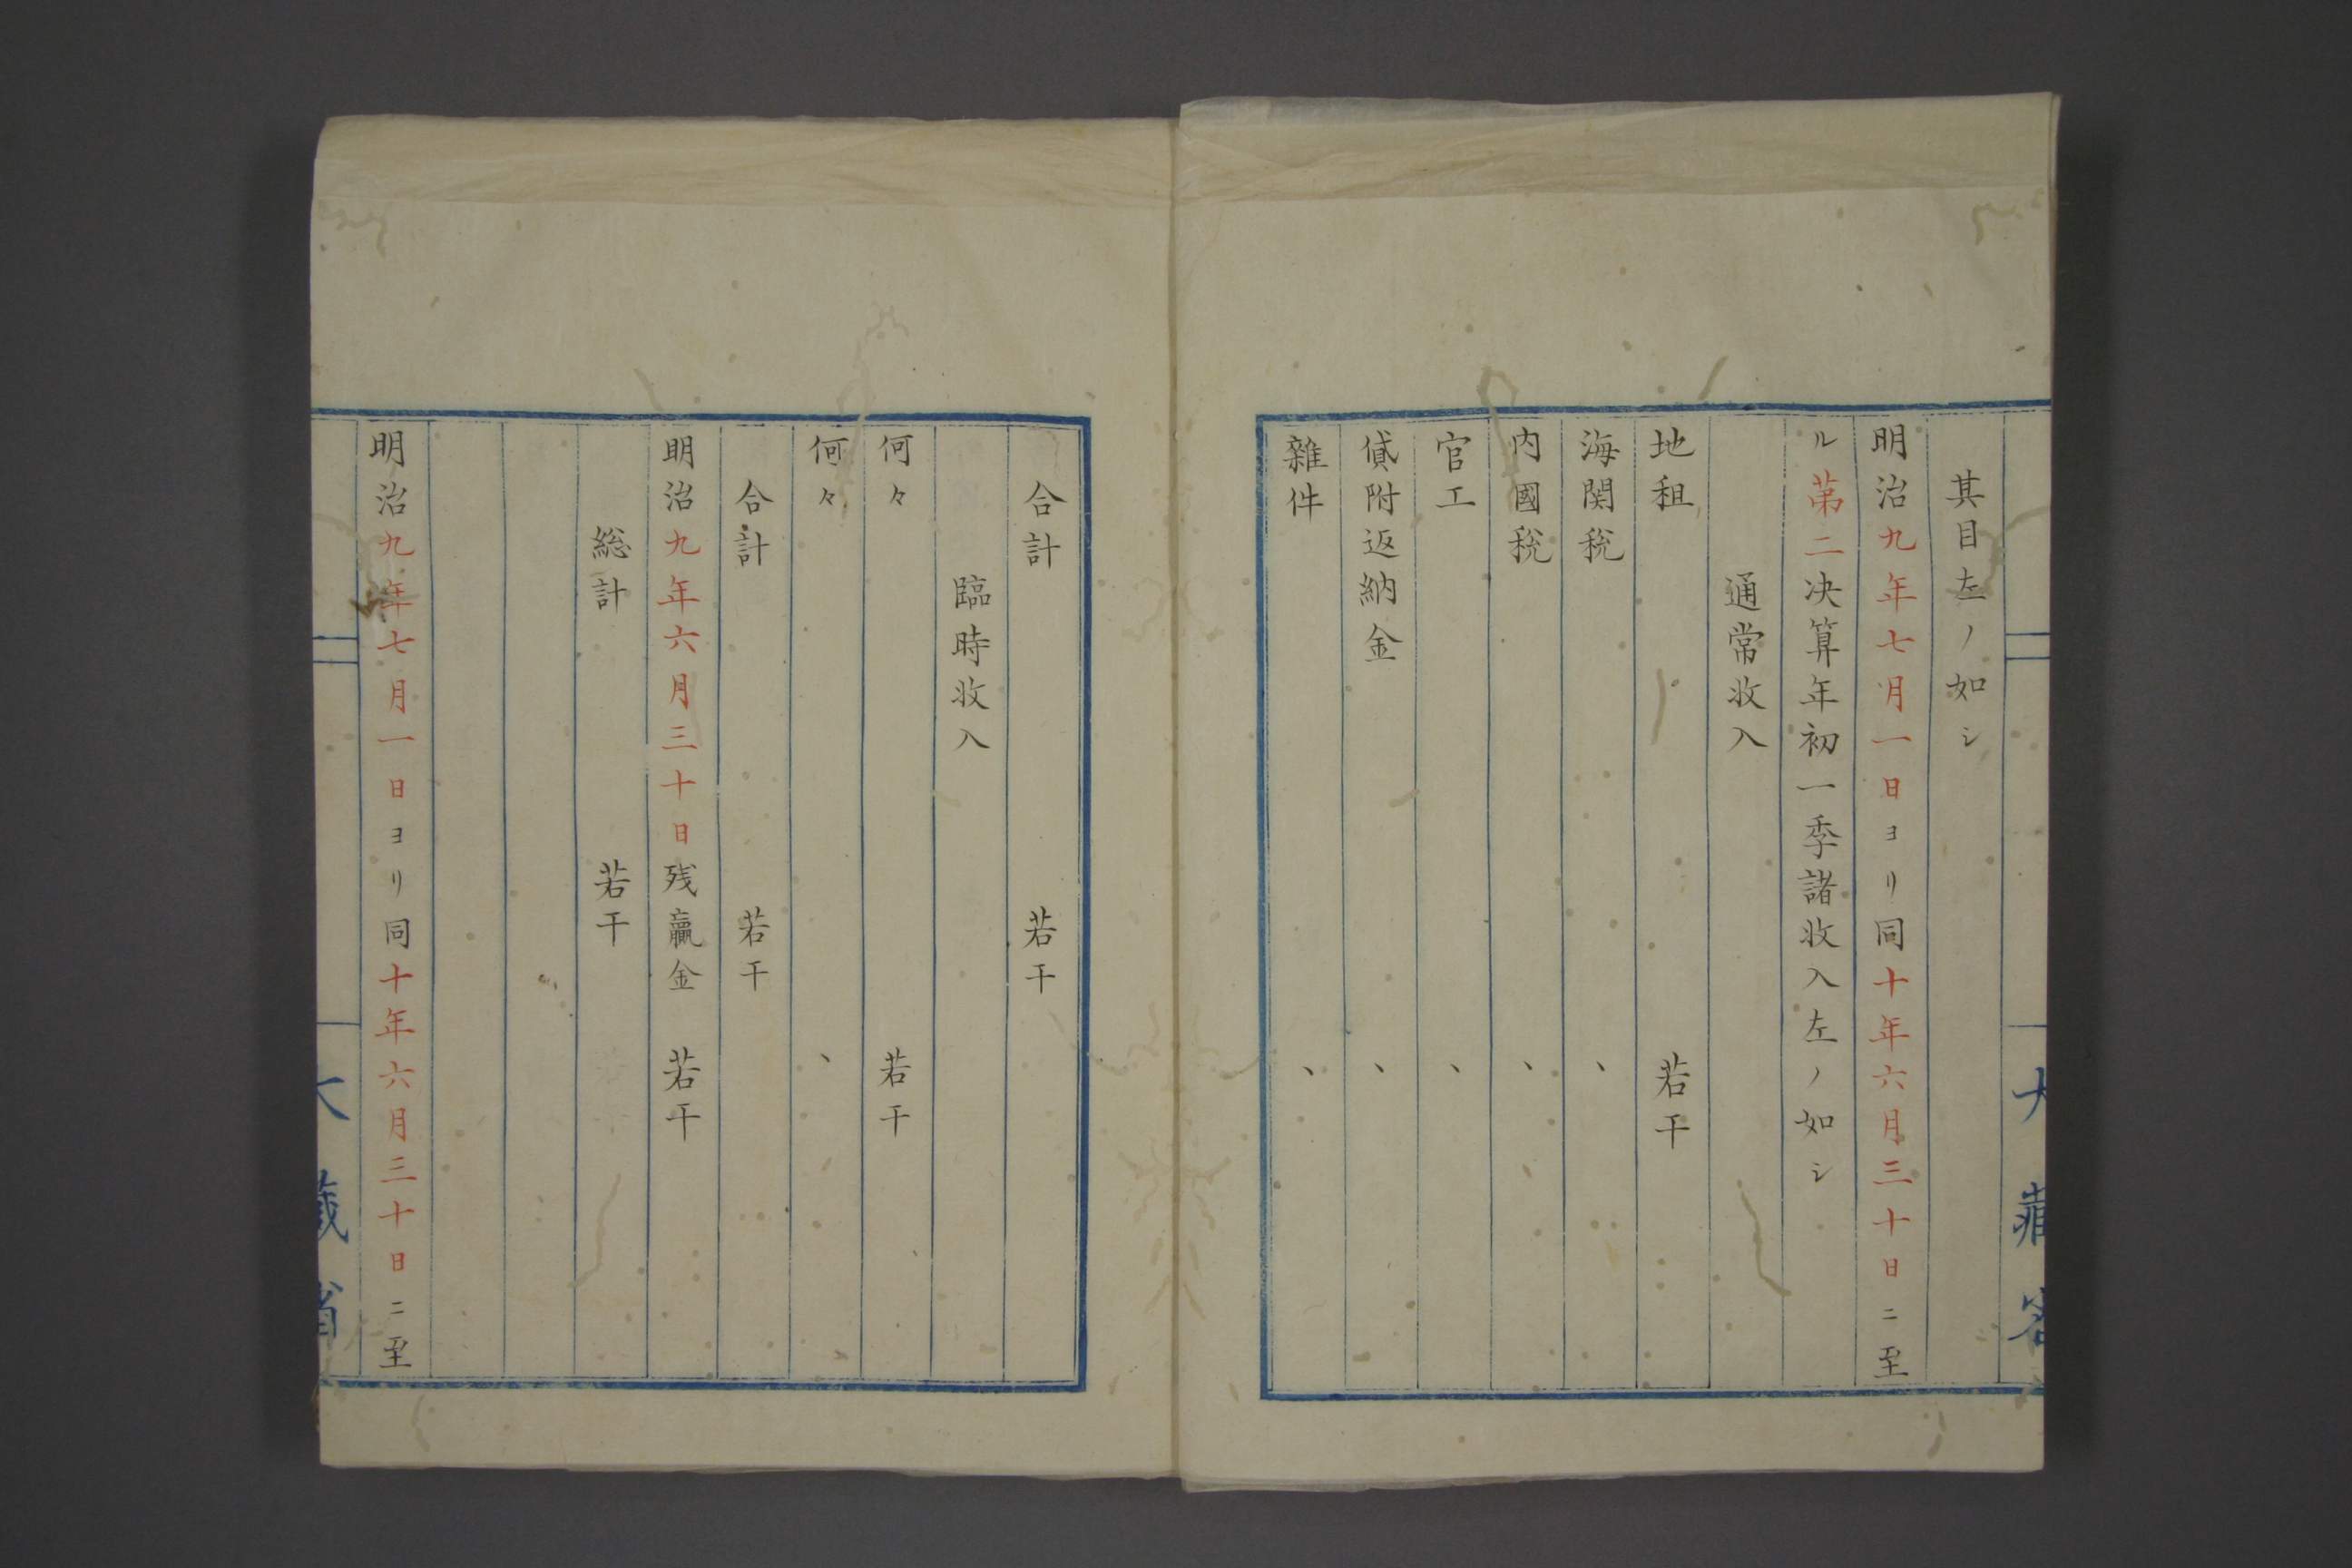 其目左ノ如シ
明治九年七月一日ヨリ同十年六月三十日ニ至
ル第二决算年初一季諸收入左ノ如シ
通常收入
地租 若干
海関税 、
内國税 、
官工 、
貸附返納金 、
雜件 、
合計 若干
臨時收入
何々 若干
何々 、
合計 若干
明治九年六月三十日残贏金 若干
総計 若干
明治九年七月一日ヨリ同十年六月三十日ニ至
大藏省